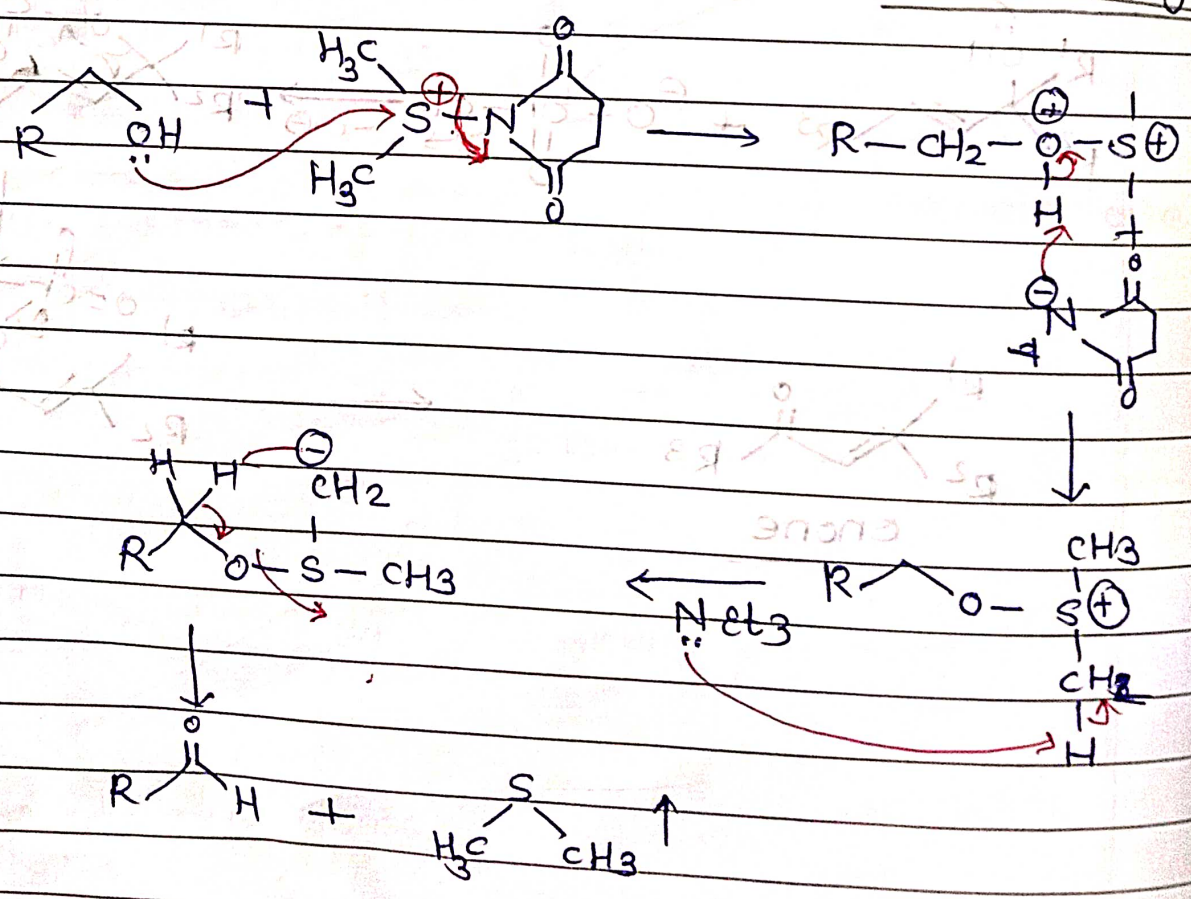 R OH + H3C S ⊕ N H3C O O → R — CH2 — O ⊕ — S ⊕
H +
⊖ N O O
H H ⊖ CH2
R O — S — CH3 ← N Et3 R O — S ⊕ CH3
CH2
H
O
R H + S H3C CH3 ↑